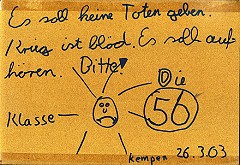 Es soll keine Toten geben.
Krieg ist blöd. Es soll auf-
hören. Bitte!
Die
Klasse
56
Kempen 26.3.03